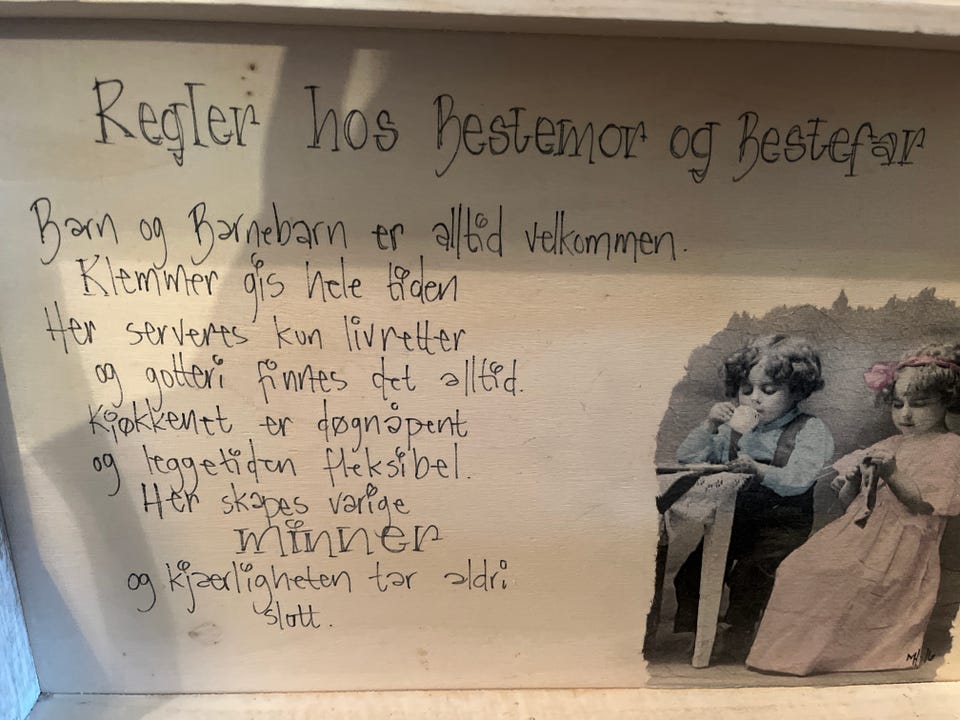 Regler hos Bestemor og Bestefar
Barn og Barnebarn er alltid velkommen.
Klemmer gis hele tiden
Her serveres kun livretter
og gotteri finnes det alltid.
Kjøkkenet er døgnåpent
og leggetiden fleksibel.
Her skapes varige
minner
og kjærligheten tar aldri
slutt.